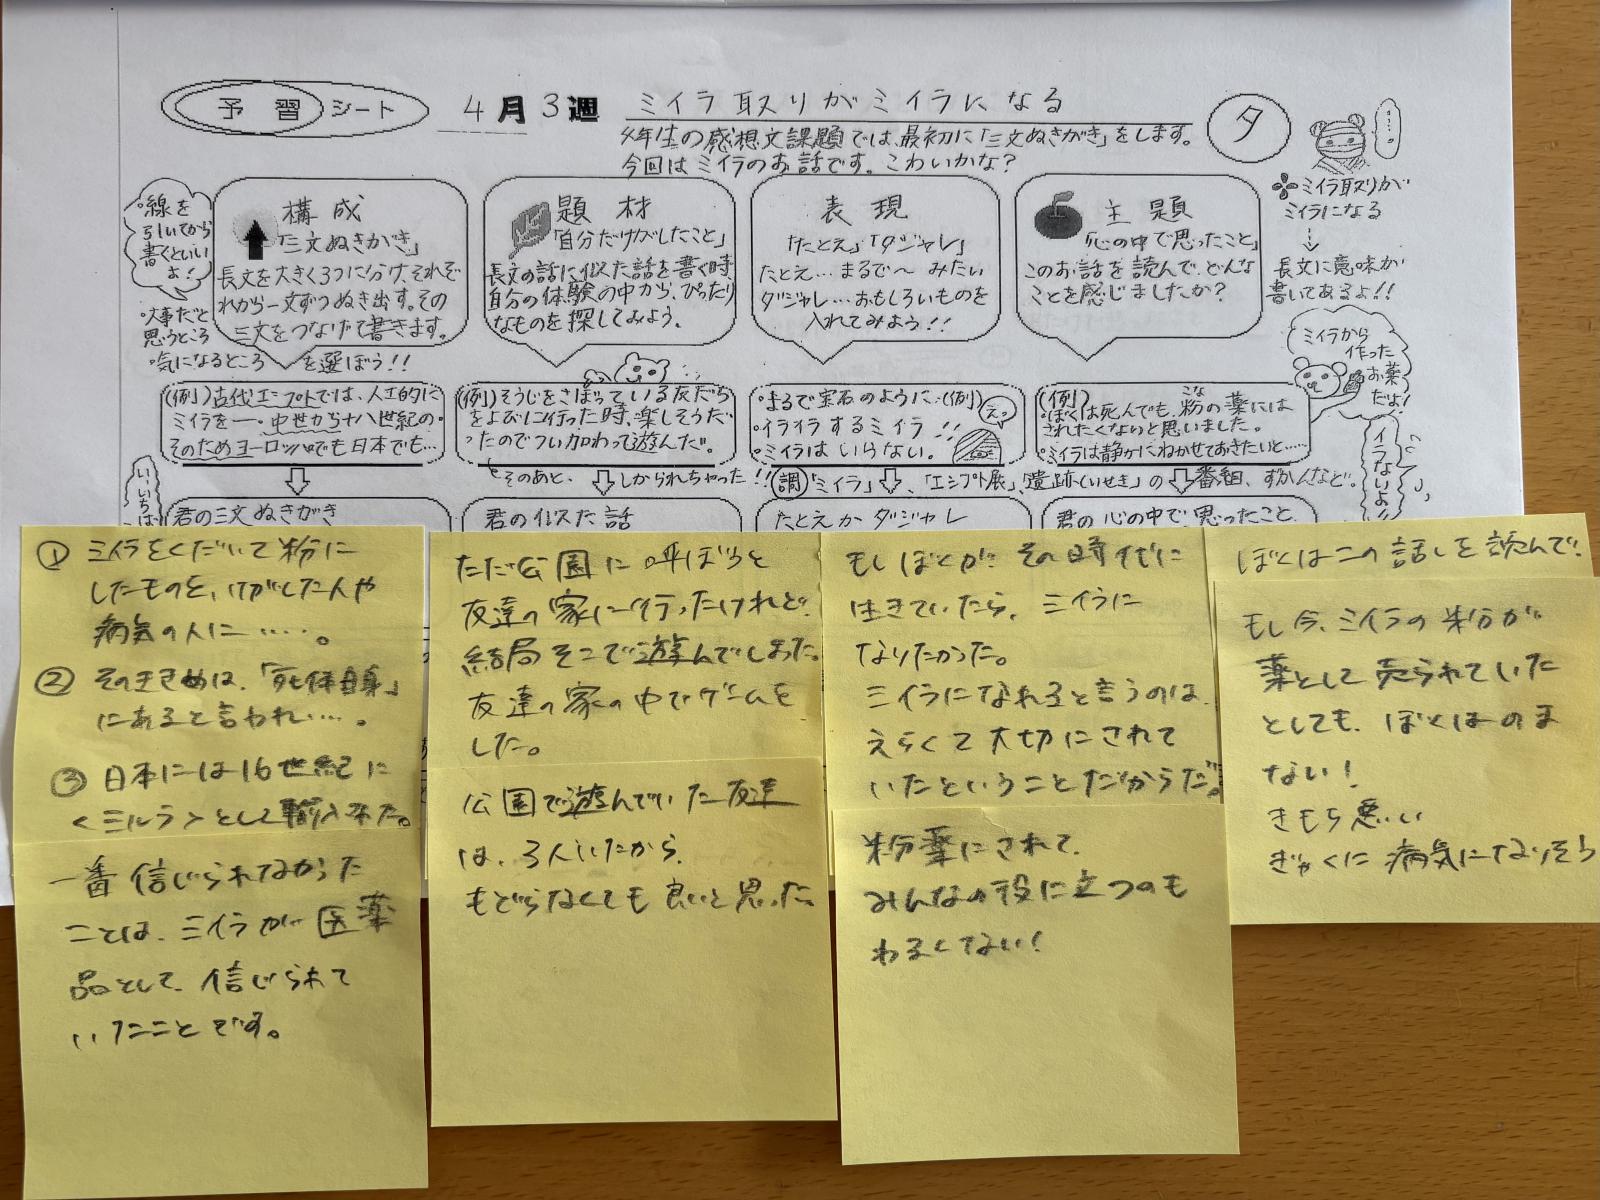 予習シート 4月3週 ミイラ取りがミイラになる
タ
4年生の感想文課題では、最初に「三文ぬきがき」をします。
今回はミイラのお話です。こわいかな？
線を
引いてから
書くといい
よ！
・大事だと
思うところ
・気になるところ を選ぼう！！
構成
「三文ぬきがき」
長文を大きく3つに分け、それぞ
れから一文ずつぬき出す。その
三文をつなげて書きます。
題材
「自分だけがしたこと」
長文の話に似た話を書く時、
自分の体験の中から、ぴったり
なものを探してみよう。
表現
「たとえ」「ダジャレ」
たとえ…まるで～みたい
ダジャレ…おもしろいものを
入れてみよう！！
主題
「心の中で思ったこと」
このお話を読んで、どんな
ことを感じましたか？
ミイラ取りが
ミイラになる
長文に意味が
書いてあるよ！！
ミイラから
作った
お薬
だよ！
（例）古代エジプトでは、人工的に
ミイラを…・中世から十八世紀の・
そのためヨーロッパでも日本でも…
（例）そうじをさぼっている友だち
をよびに行った時、楽しそうだ
ったのでつい加わって遊んだ。
そのあと、しかられちゃった！！
・まるで宝石のように（例）
・イライラするミイラ！！
・ミイラはいらない。
えっ
（例）
・ぼくは死んでも、粉の薬には
こな
されたくないと思いました。
・ミイラは静かにねかせておきたいと……
イラないよ！！
調「ミイラ」、「エジプト展」、「遺跡（いせき）」の番組、ずかんなど。
君の三文ぬきがき
君の似た話
たとえかダジャレ
君の心の中で思ったこと
① ミイラをくだいて粉に
したものを、けがした人や
病気の人に……。
② そのききめは、「死体自身」
にあると言われ…。
③ 日本には16世紀に
＜ミルラ＞として輸入された。
一番信じられなかった
ことは、ミイラが医薬
品として、信じられて
いたことです。
ただ公園に呼ぼうと
友達の家に行ったけれど
結局そこで遊んでしまった。
友達の家の中でゲームを
した。
公園で遊んでいた友達
は、3人いたから、
もどらなくても良いと思った。
もしぼくが、その時代に
生きていたら、ミイラに
なりたかった。
ミイラになれると言うのは、
えらくて大切にされて
いたということだからだ。
粉薬にされて、
みんなの役に立つのも
わるくない！
ぼくはこの話しを読んで、
もし今、ミイラの粉が
薬として売られていた
としても、ぼくはのま
ない！
きもち悪い
ぎゃくに病気になりそう